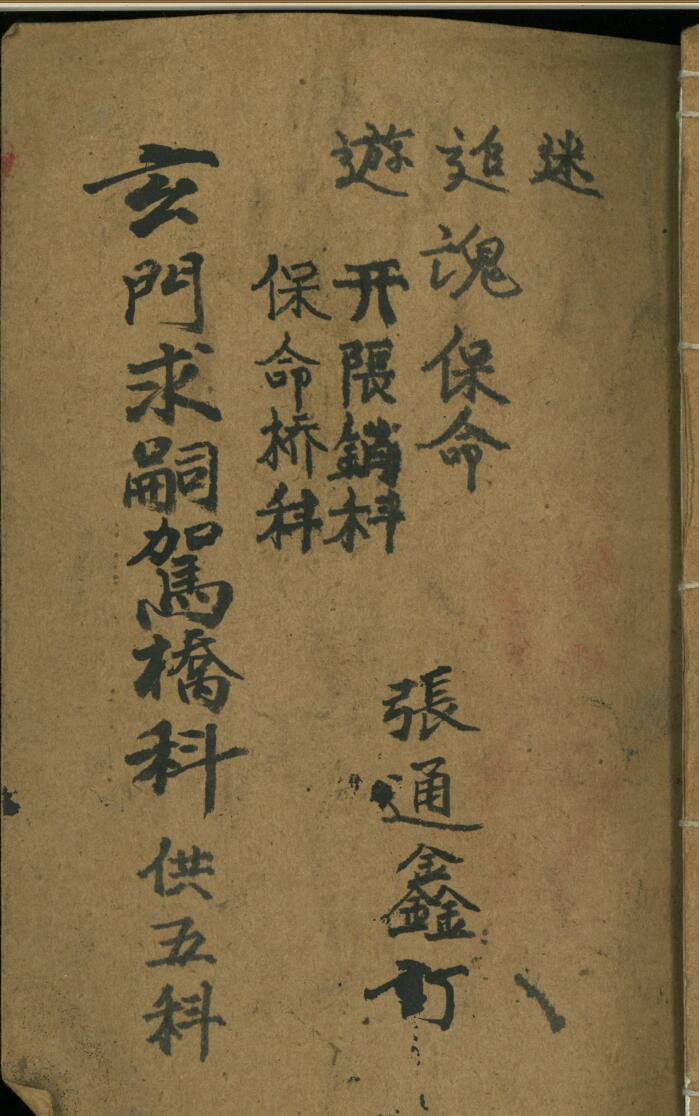 迷
追魂保命
遊
开限銷科
保命桥科
玄門求嗣駕橋科 供五科
張通鑫訂